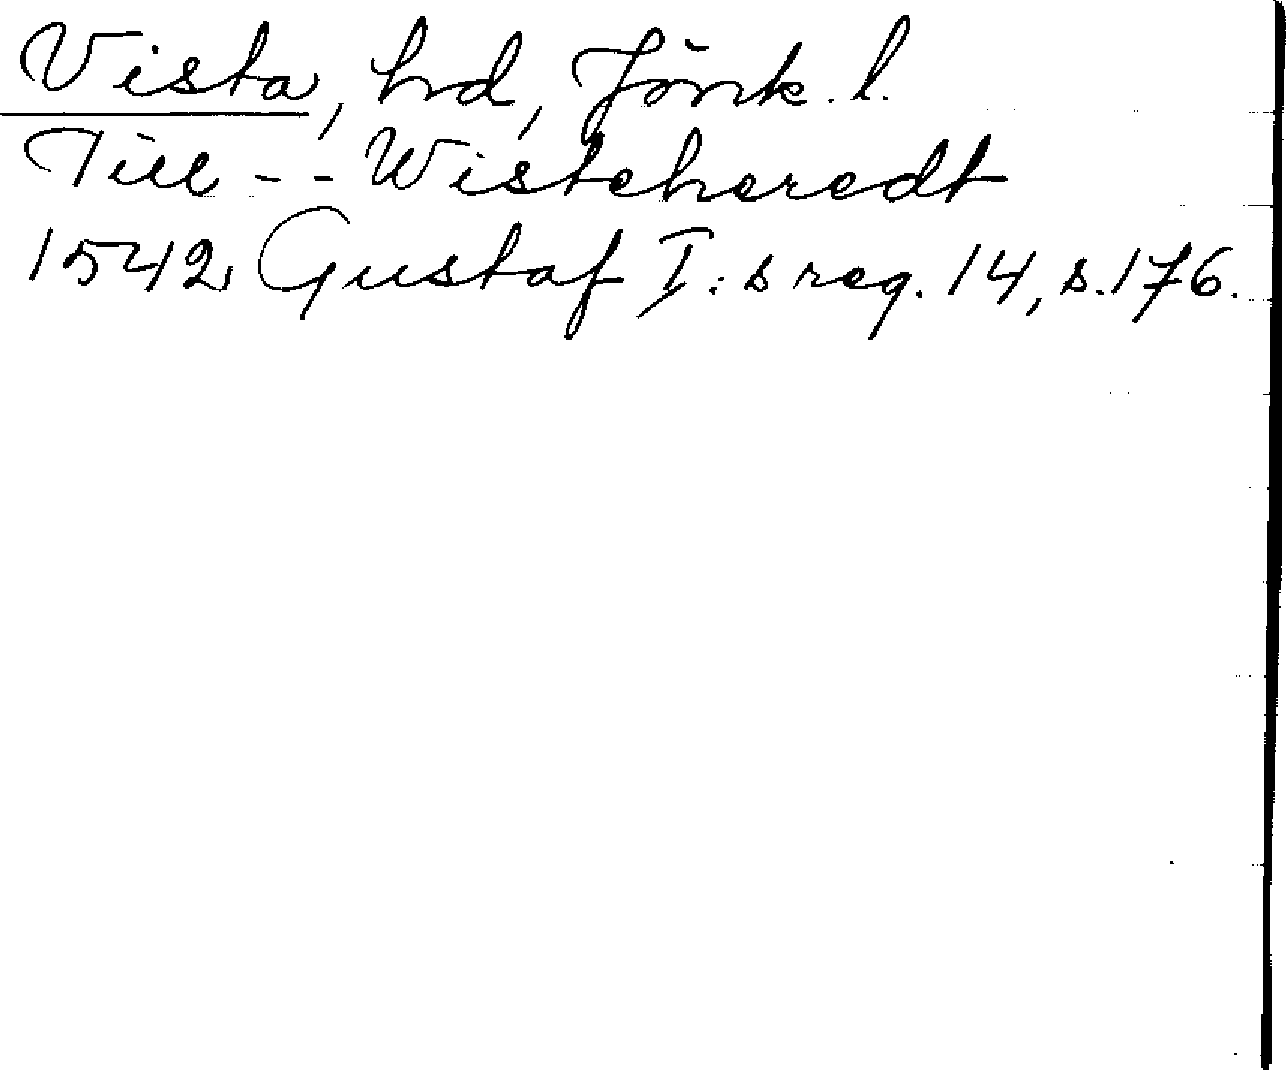 Vista, hd, Jönk. l.
Till -- Wisteheredt
1542 Gustaf I:s reg. 14, s. 176.